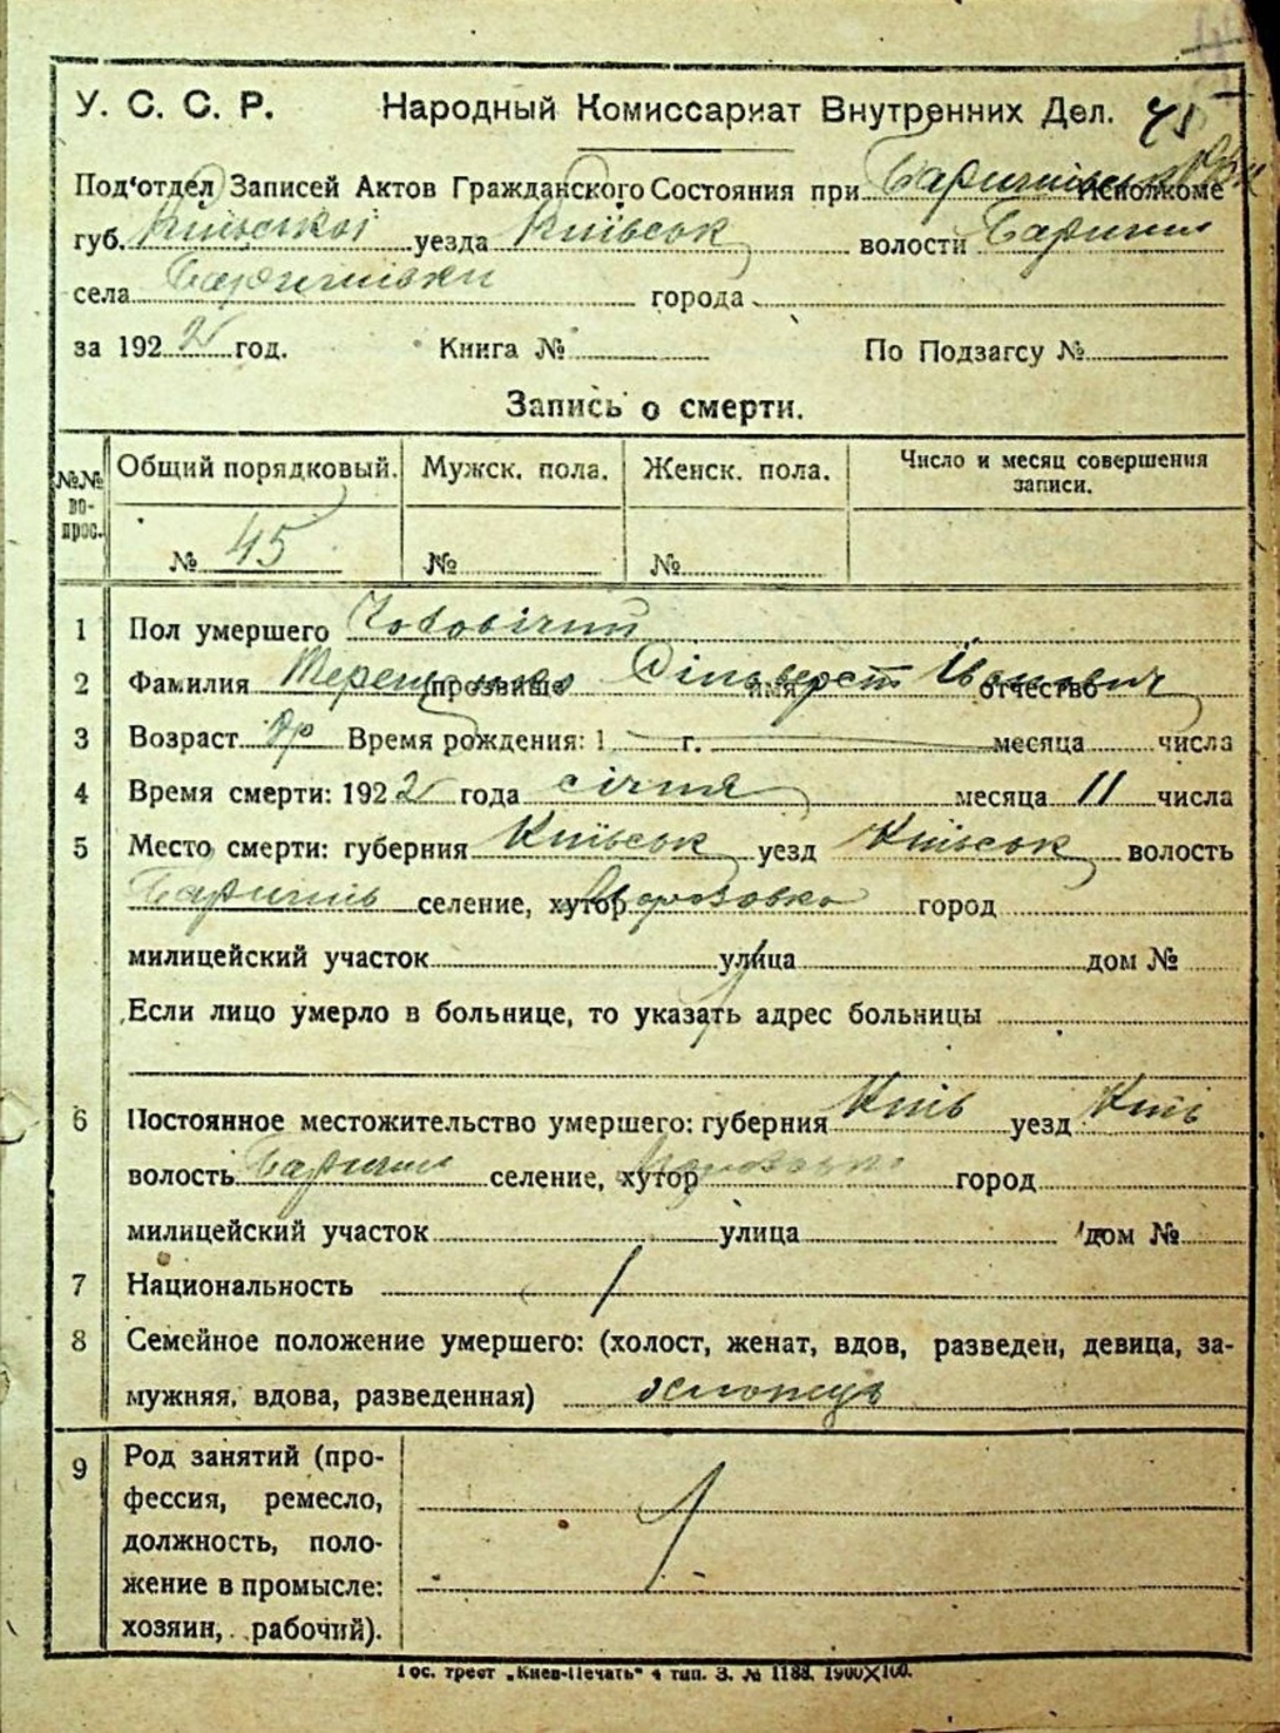 У. С. С. Р. Народный Комиссариат Внутренних Дел. 45
Под'отдел Записей Актов Гражданского Состояния при Исполкоме
губ. Київської уезда Київськ волости
села за 192 2 год. города
за 192 2 год. Книга № По Подзагсу №
Запись о смерти.
№№ вопрос. Общий порядковый. Мужск. пола. Женск. пола. Число и месяц совершения записи.
№ 45 № №
1 Пол умершего Чоловічий
2 Фамилия Терещенко прозвище Сільверст имя Іванович отчество
3 Возраст Время рождения: 1 г. месяца числа
4 Время смерти: 192 2 года січня месяца 11 числа
5 Место смерти: губерния Київськ уезд Київськ волость
селение, хутор город
милицейский участок улица дом №
Если лицо умерло в больнице, то указать адрес больницы
6 Постоянное местожительство умершего: губерния Київ уезд Київ
волость селение, хутор город
милицейский участок улица дом №
7 Национальность
8 Семейное положение умершего: (холост, женат, вдов, разведен, девица, за-
мужняя, вдова, разведенная) хлопець
9 Род занятий (про-
фессия, ремесло,
должность, поло-
жение в промысле:
хозяин, рабочий).
Гос. трест „Киев-Печать" 4 тип. З. № 1188. 1900X100.